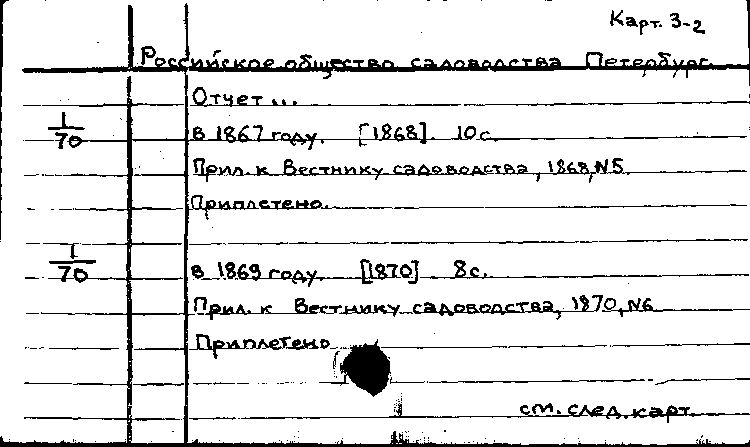 Карт. 3-2
Российское общество садоводства Петербург.
Отчет...
1/70 в 1867 году. [1868]. 10 с.
Прил. к Вестнику садоводства, 1868, N5.
Приплетено.
1/70 в 1869 году. [1870] 8 с.
Прил. к Вестнику садоводства, 1870, N6
Приплетено
см. след. карт.